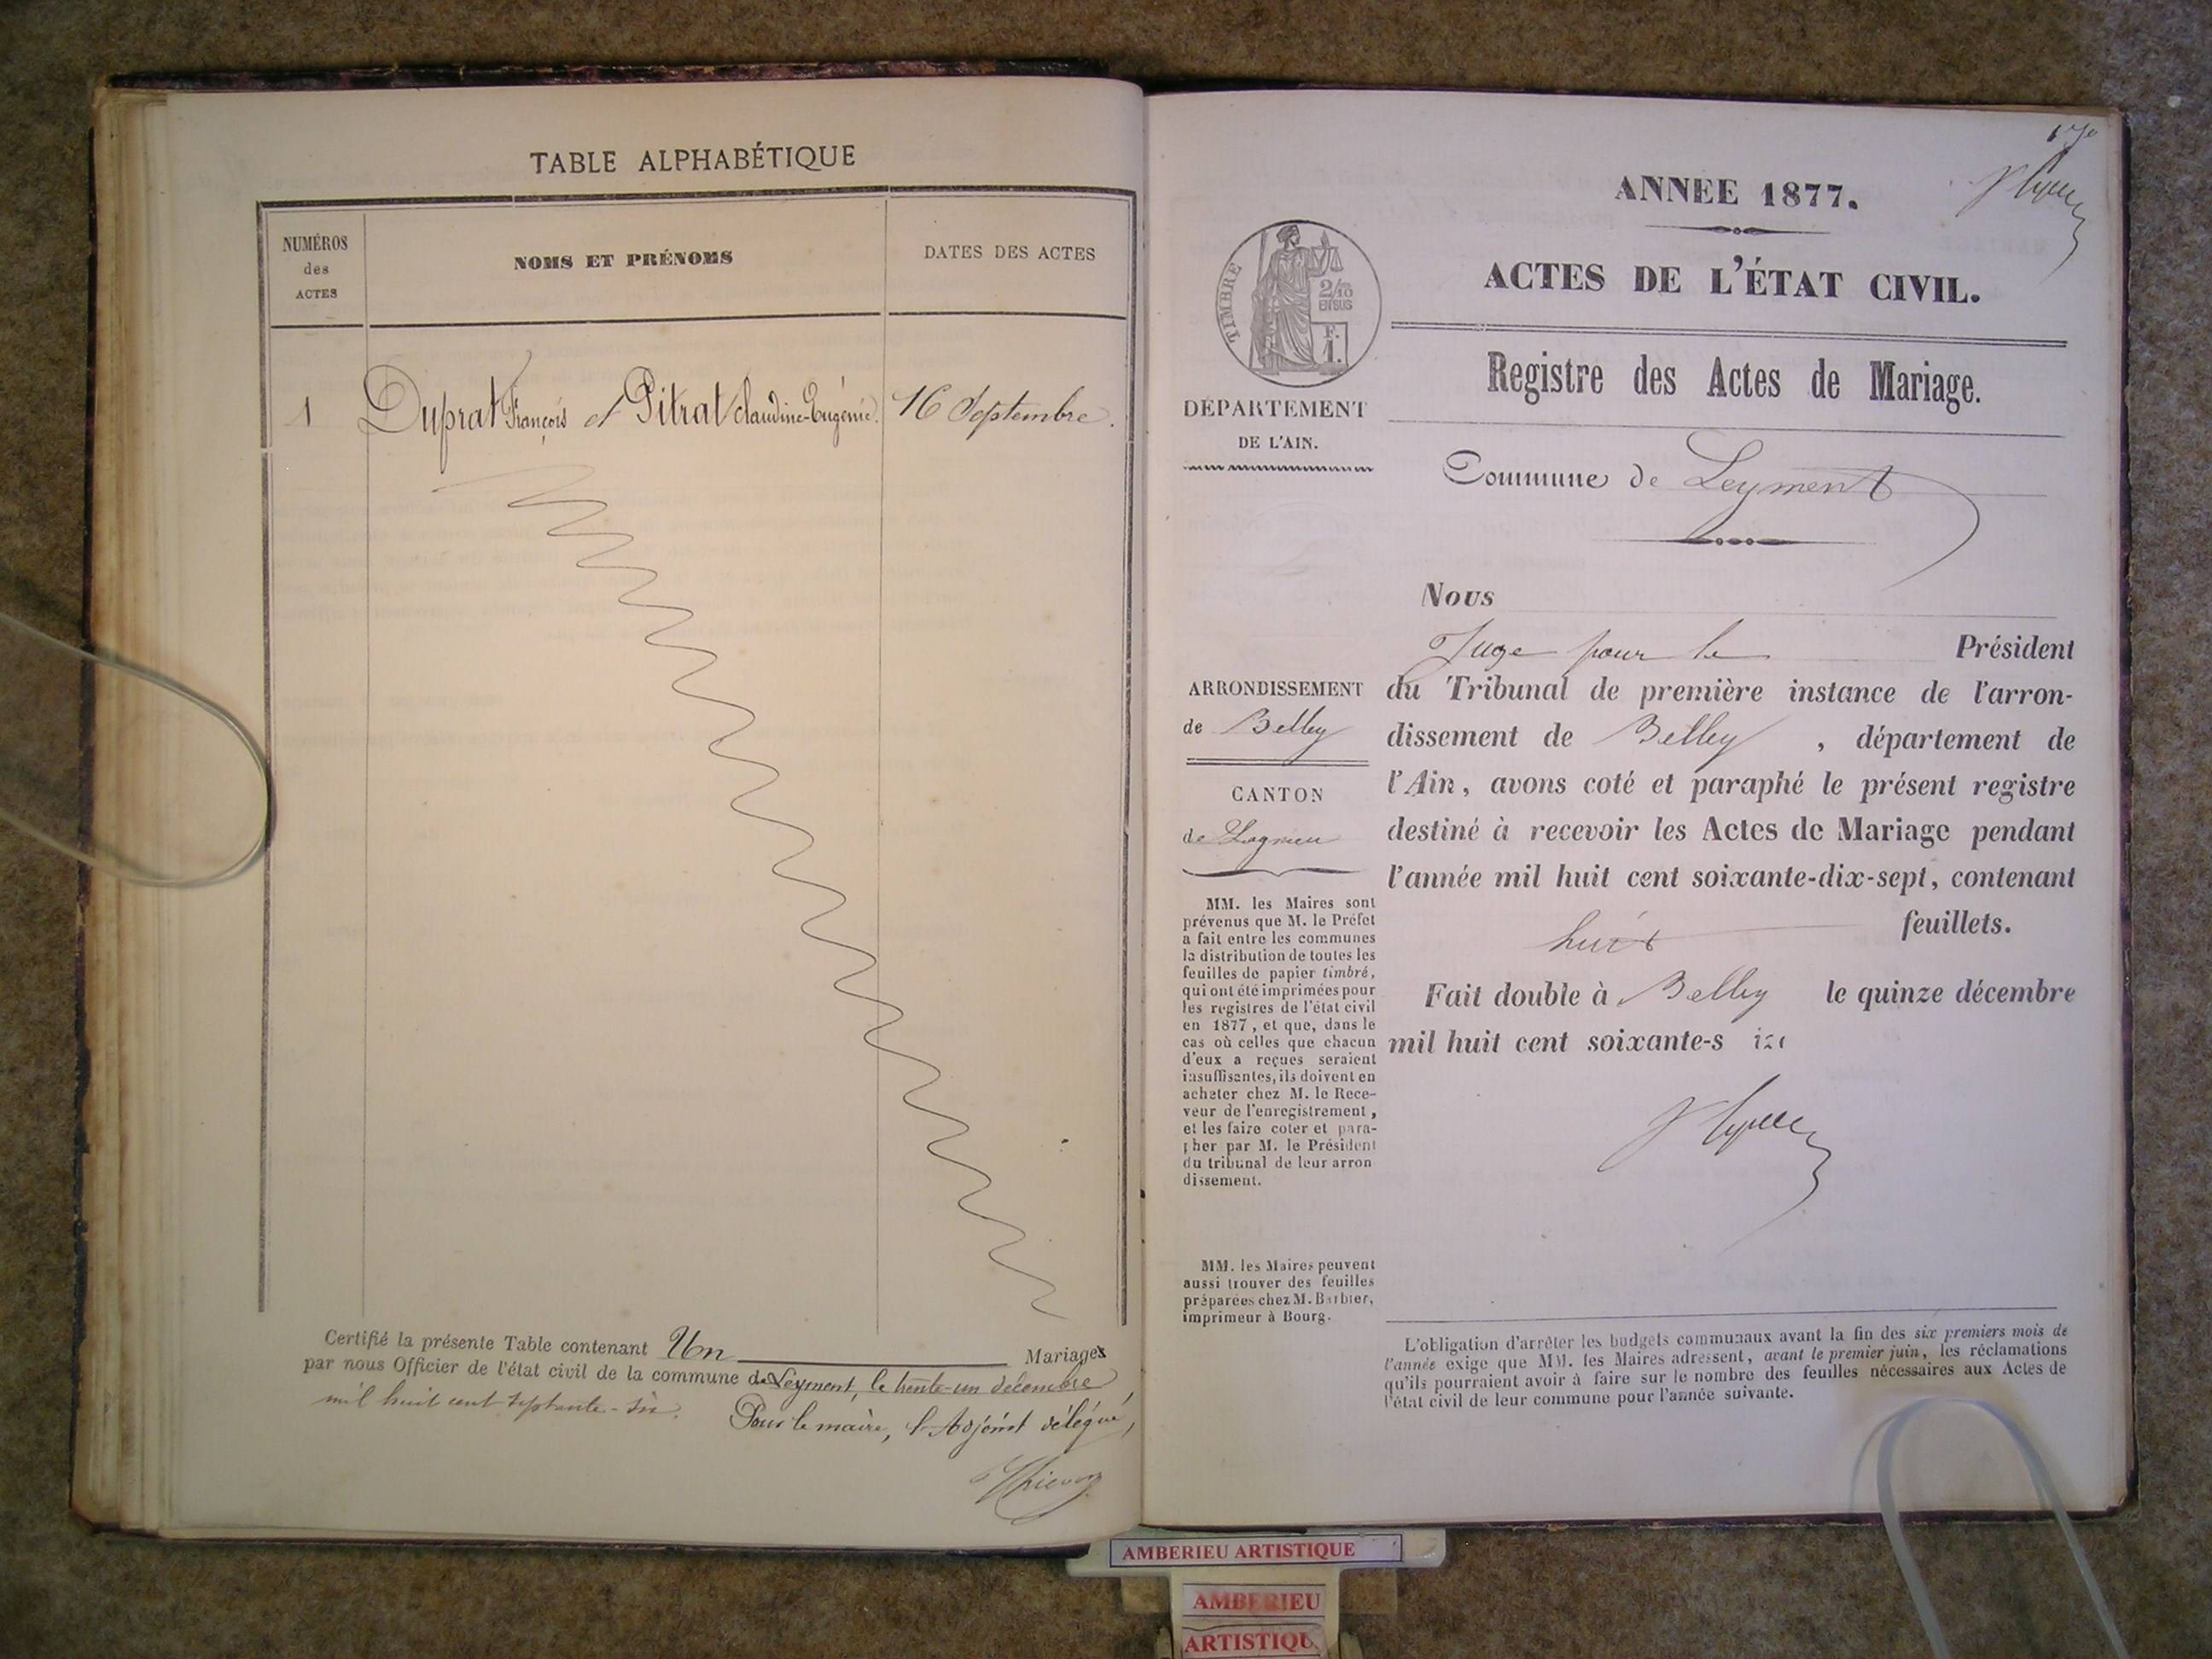 TABLE ALPHABÉTIQUE
NUMÉROS
des
ACTES
NOMS ET PRÉNOMS
DATES DES ACTES
1 Duprat François et Pitrat Claudine-Eugénie. 16 Septembre.
Certifié la présente Table contenant Un Mariages
par nous Officier de l'état civil de la commune de Leyment, le trente-un décembre
mil huit cent septante-six.
Pour le maire, l'Adjoint délégué,
ANNÉE 1877.
ACTES DE L'ÉTAT CIVIL.
TIMBRE
2/10
EN SUS
F.
1.
Registre des Actes de Mariage.
DÉPARTEMENT
DE L'AIN.
Commune de Leyment
Nous
Juge pour le Président
du Tribunal de première instance de l'arron-
dissement de Belley, département de
l'Ain, avons coté et paraphé le présent registre
destiné à recevoir les Actes de Mariage pendant
l'année mil huit cent soixante-dix-sept, contenant
huit feuillets.
Fait double à Belley le quinze décembre
mil huit cent soixante-s ize
ARRONDISSEMENT
de Belley
CANTON
de Lagnieu
MM. les Maires sont
prévenus que M. le Préfet
a fait entre les communes
la distribution de toutes les
feuilles de papier timbré,
qui ont été imprimées pour
les registres de l'état civil
en 1877, et que, dans le
cas où celles que chacun
d'eux a reçues seraient
insuffisantes, ils doivent en
acheter chez M. le Rece-
veur de l'enregistrement,
et les faire coter et para-
pher par M. le Président
du tribunal de leur arron
dissement.
MM. les Maires peuvent
aussi trouver des feuilles
préparées chez M. Barbier,
imprimeur à Bourg.
L'obligation d'arrêter les budgets communaux avant la fin des six premiers mois de
l'année exige que MM. les Maires adressent, avant le premier juin, les réclamations
qu'ils pourraient avoir à faire sur le nombre des feuilles nécessaires aux Actes de
l'état civil de leur commune pour l'année suivante.
AMBERIEU ARTISTIQUE
AMBERIEU
ARTISTIQU